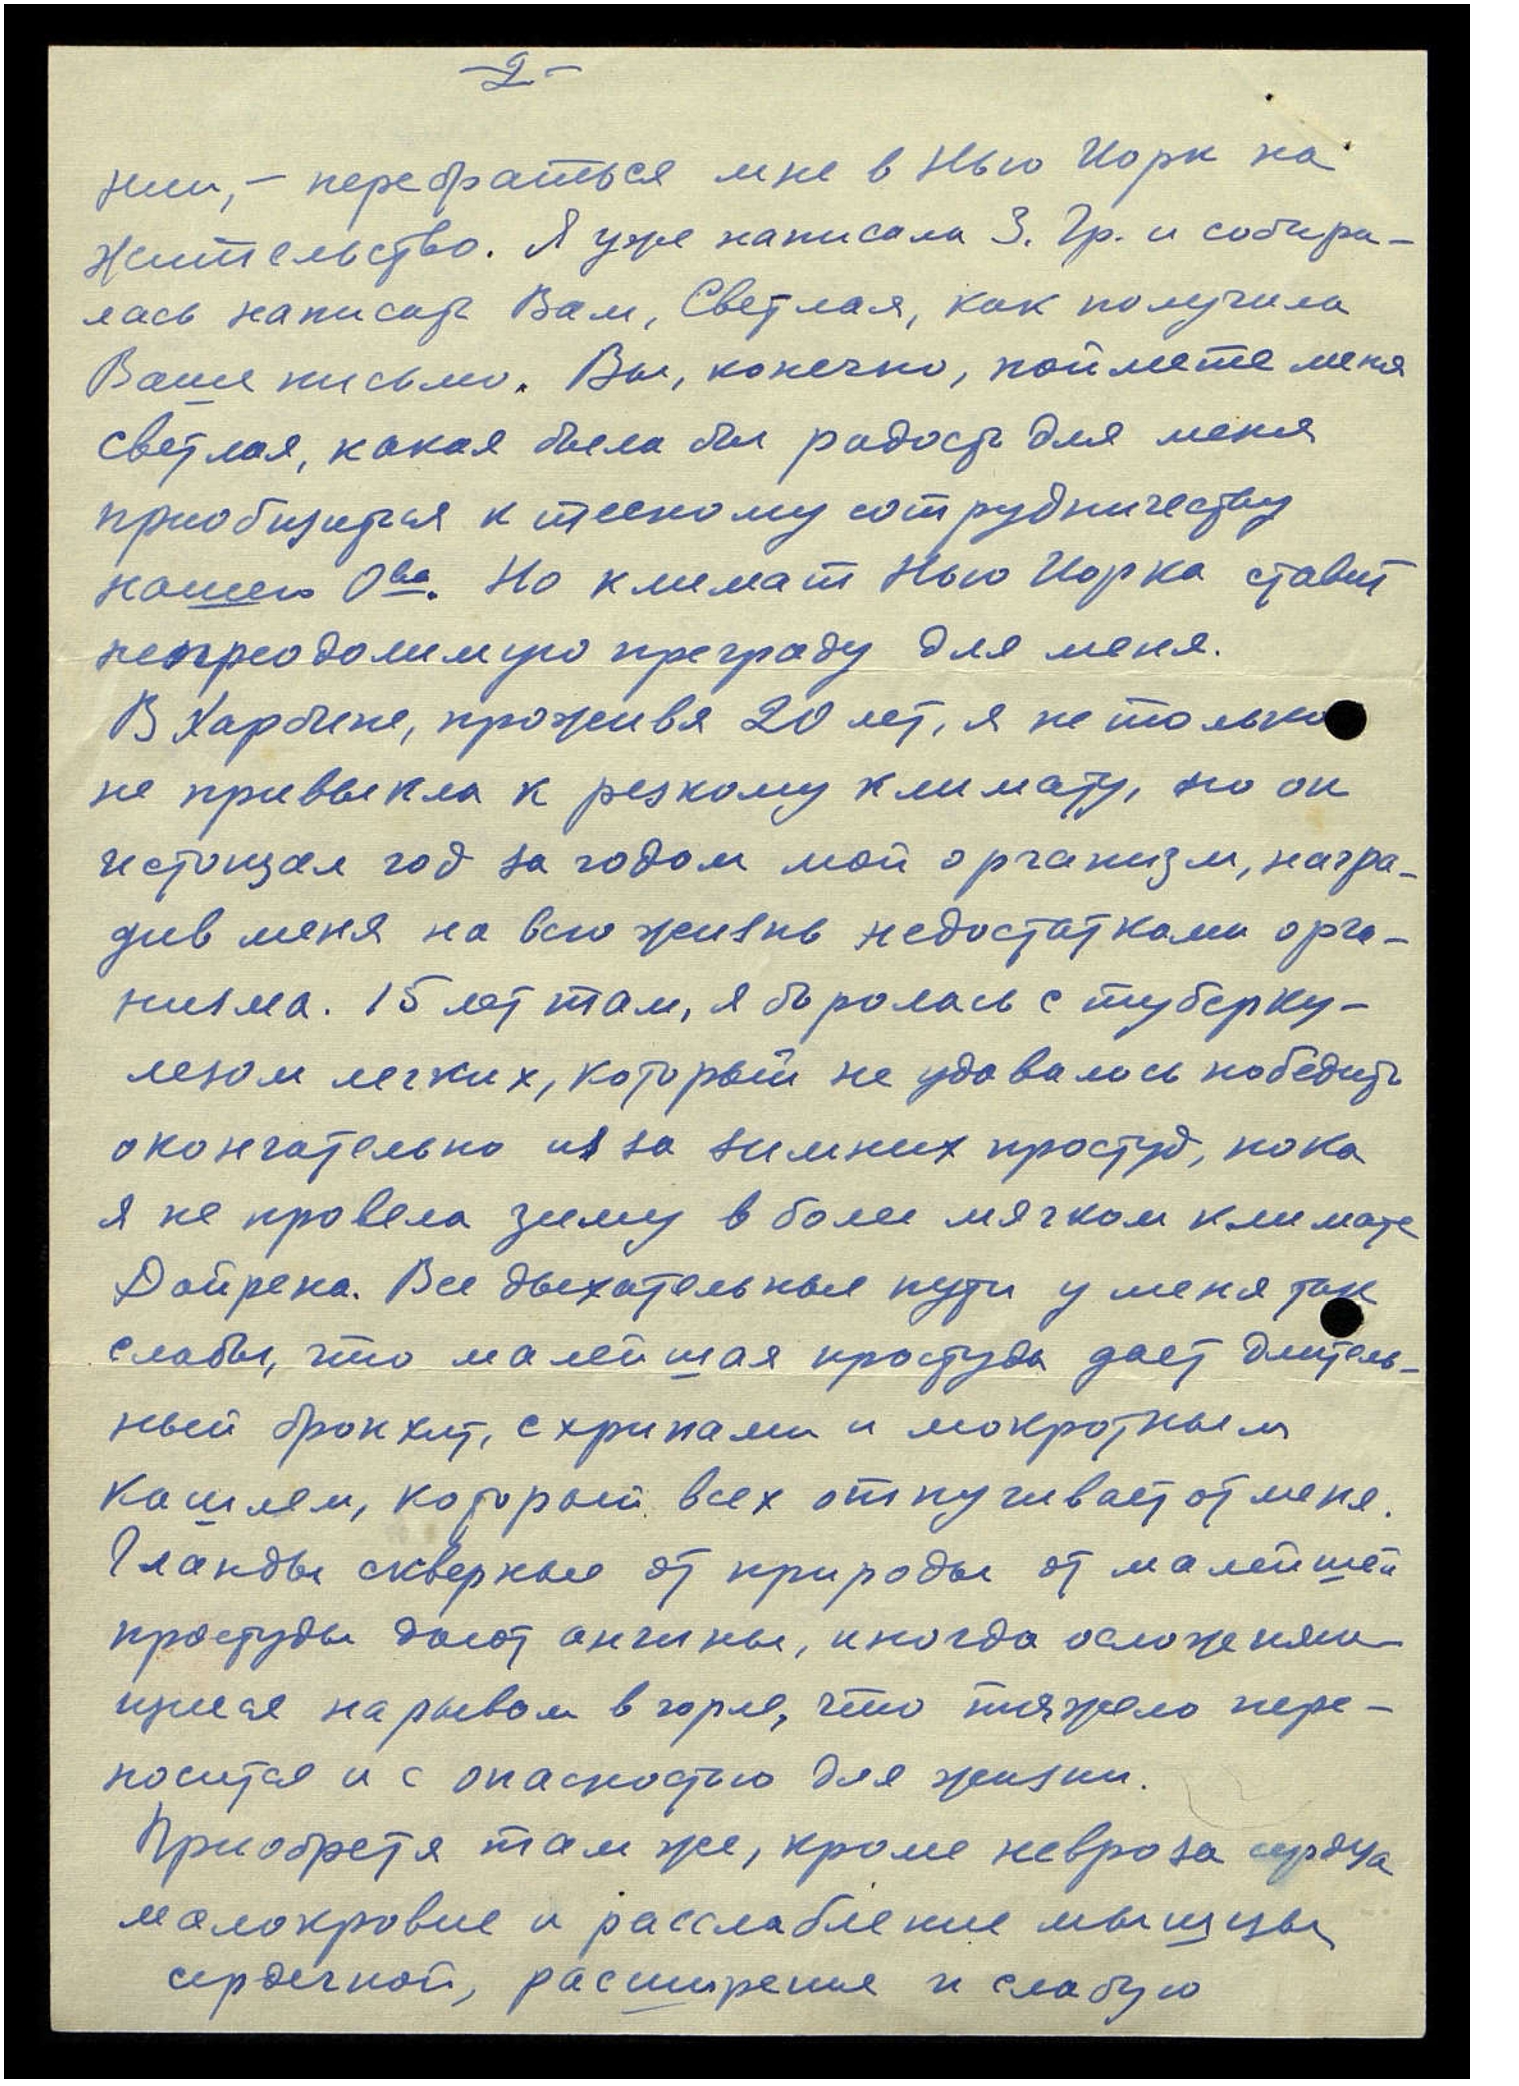 -2-
нии, - перебраться мне в Нью Иорк на
жительство. Я уже написала З. Гр. и собира-
лась написать Вам, Светлая, как получила
Ваше письмо. Вы, конечно, поймете меня
Светлая, какая была бы радость для меня
приобщиться к тесному сотрудничеству
нашего О-ва. Но климат Нью Иорка ставит
непреодолимую преграду для меня.
В Харбине, проживя 20 лет, я не только
не привыкла к резкому климату, но он
истощал год за годом мой организм, награ-
див меня на всю жизнь недостатками орга-
низма. 15 лет там, я боролась с туберку-
лезом легких, который не удавалось победить
окончательно из за зимних простуд, пока
я не провела зиму в более мягком климате
Дайрена. Все дыхательные пути у меня так
слабы, что малейшая простуда дает длитель-
ный бронхит, с хрипами и мокротным
кашлем, который всех отпугивает от меня.
Гланды скверные от природы от малейшей
простуды дают ангины, иногда осложняю-
щиеся нарывом в горле, что тяжело пере-
носится и с опасностью для жизни.
Приобретя там же, кроме невроза сердца
малокровие и расслабление мышцы
сердечной, расширение и слабую